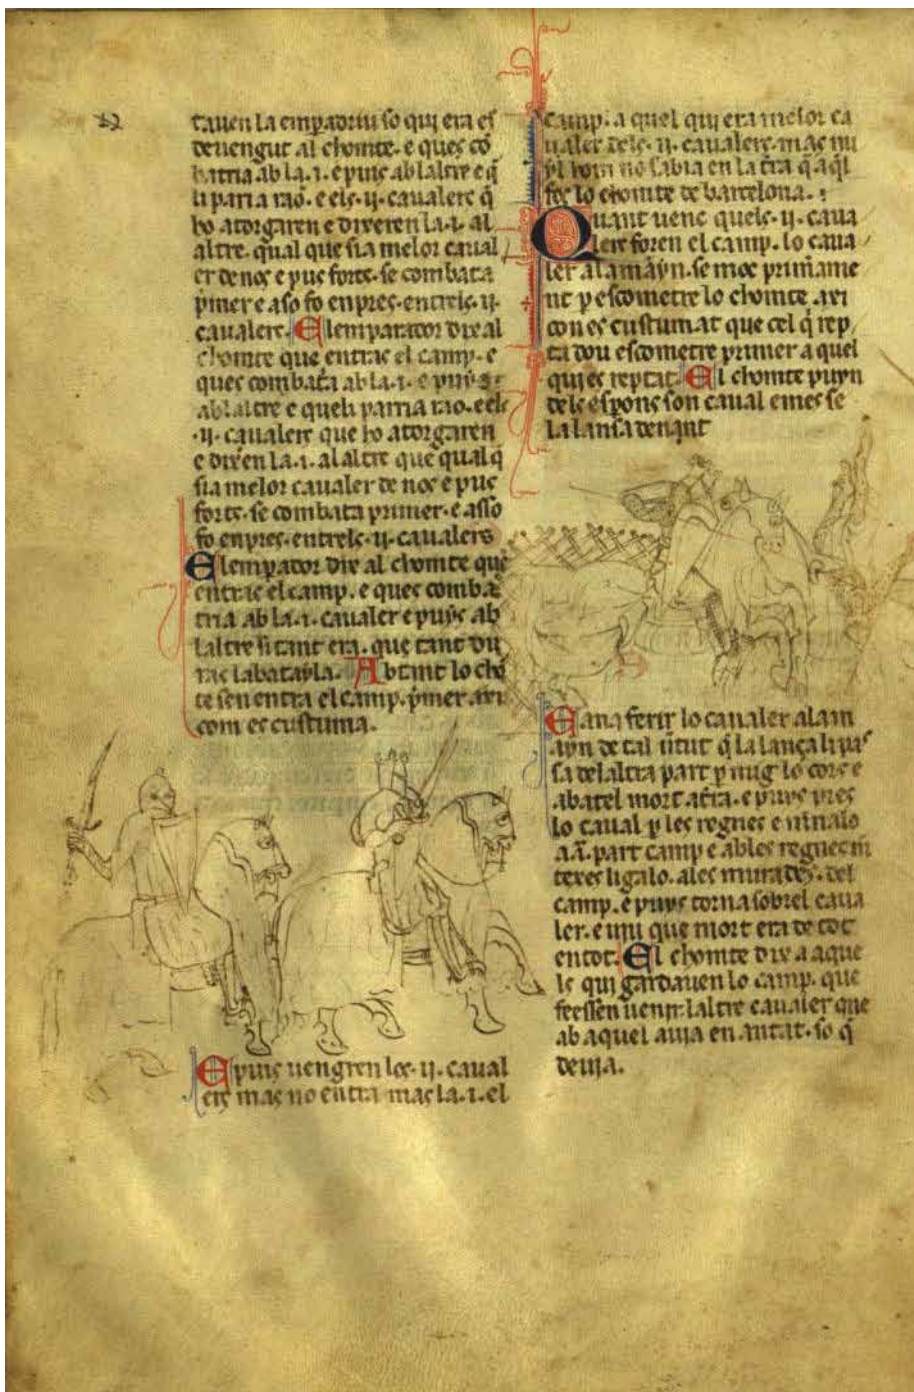 tauen la emꝑadriu so qui era es
deuengut al chomte. e ques cō
batria ab la .i. e puis ab laltre e q̄
li paria rao. e els .ij. caualers q̄
ho atorgaren e dixeren la .i. al
altre. qual que sia melor caual
er de nos e pus forts. se combata
pͥmer e aso fo enpres. entrels .ij.
caualers. Elemparador dix al
chomte que entras el camp. e
ques combatᷓa ab la .i. e puys
ab laltre e queli parria rao. e els
.ij. caualers que ho atorgaren
e dixᷓen la .i. al altre que qual q̄
sia melor caualer de nos e pus
forts. se combata primer. e asso
fo enpres. entrels .ij. caualers
Elemꝑador dix al chomte que
entras el camp. e ques comba
tria ab la .i. caualer e puys ab
laltre si tant era. que tant du
ras la batayla. Abtant lo chō
te sen entra el camp. pͥmer axi
com es custuma.
E puis uengren los .ij. caual
ers mas no entra mas la .i. el
camp. a quel qui era melor ca
ualer dels .ij. caualers. mas nu
yl hom no sabia en la tᷓra q̄ aq̄l
fos lo chomte de barcelona.
Quant uenc quels .ij. caua
lers foren el camp. lo caua
ler alamāyn. se moc primᷓame
nt ꝑ escometre lo chomte. axi
con es custumat que cel q̄ rep
ta dou escometre primer a quel
qui es reptat. El chomte puyn
dels espons son caual e mes se
la lansa denant
E ana ferir lo caualer alam
ayn de tal uͥtut q̄ la lança li pas
sa delaltra part ꝑ mig lo cors e
abatel mort atᷓra. e puys pres
lo caual ꝑ les regnes e menalo
a .i. part camp e ab les regnes m
texes ligalo. ales murades. del
camp. e puys torna sobrel caua
ler. e uiu que mort era de tot
entot. El chomte dix a aque
ls qui gardauen lo camp. que
feessen uenir laltre caualer que
ab aquel auia en antat. so q̄
deuia.